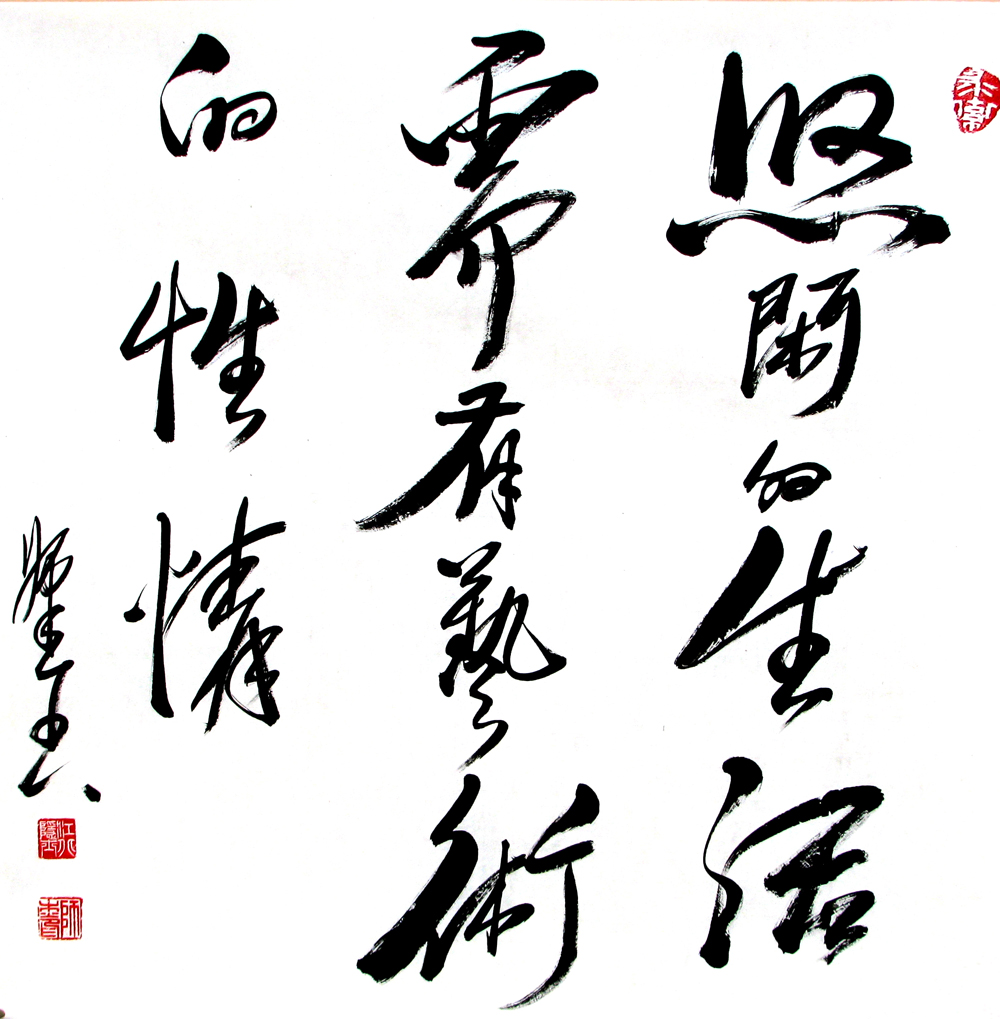 悠閑的生活
需有藝術
的性情